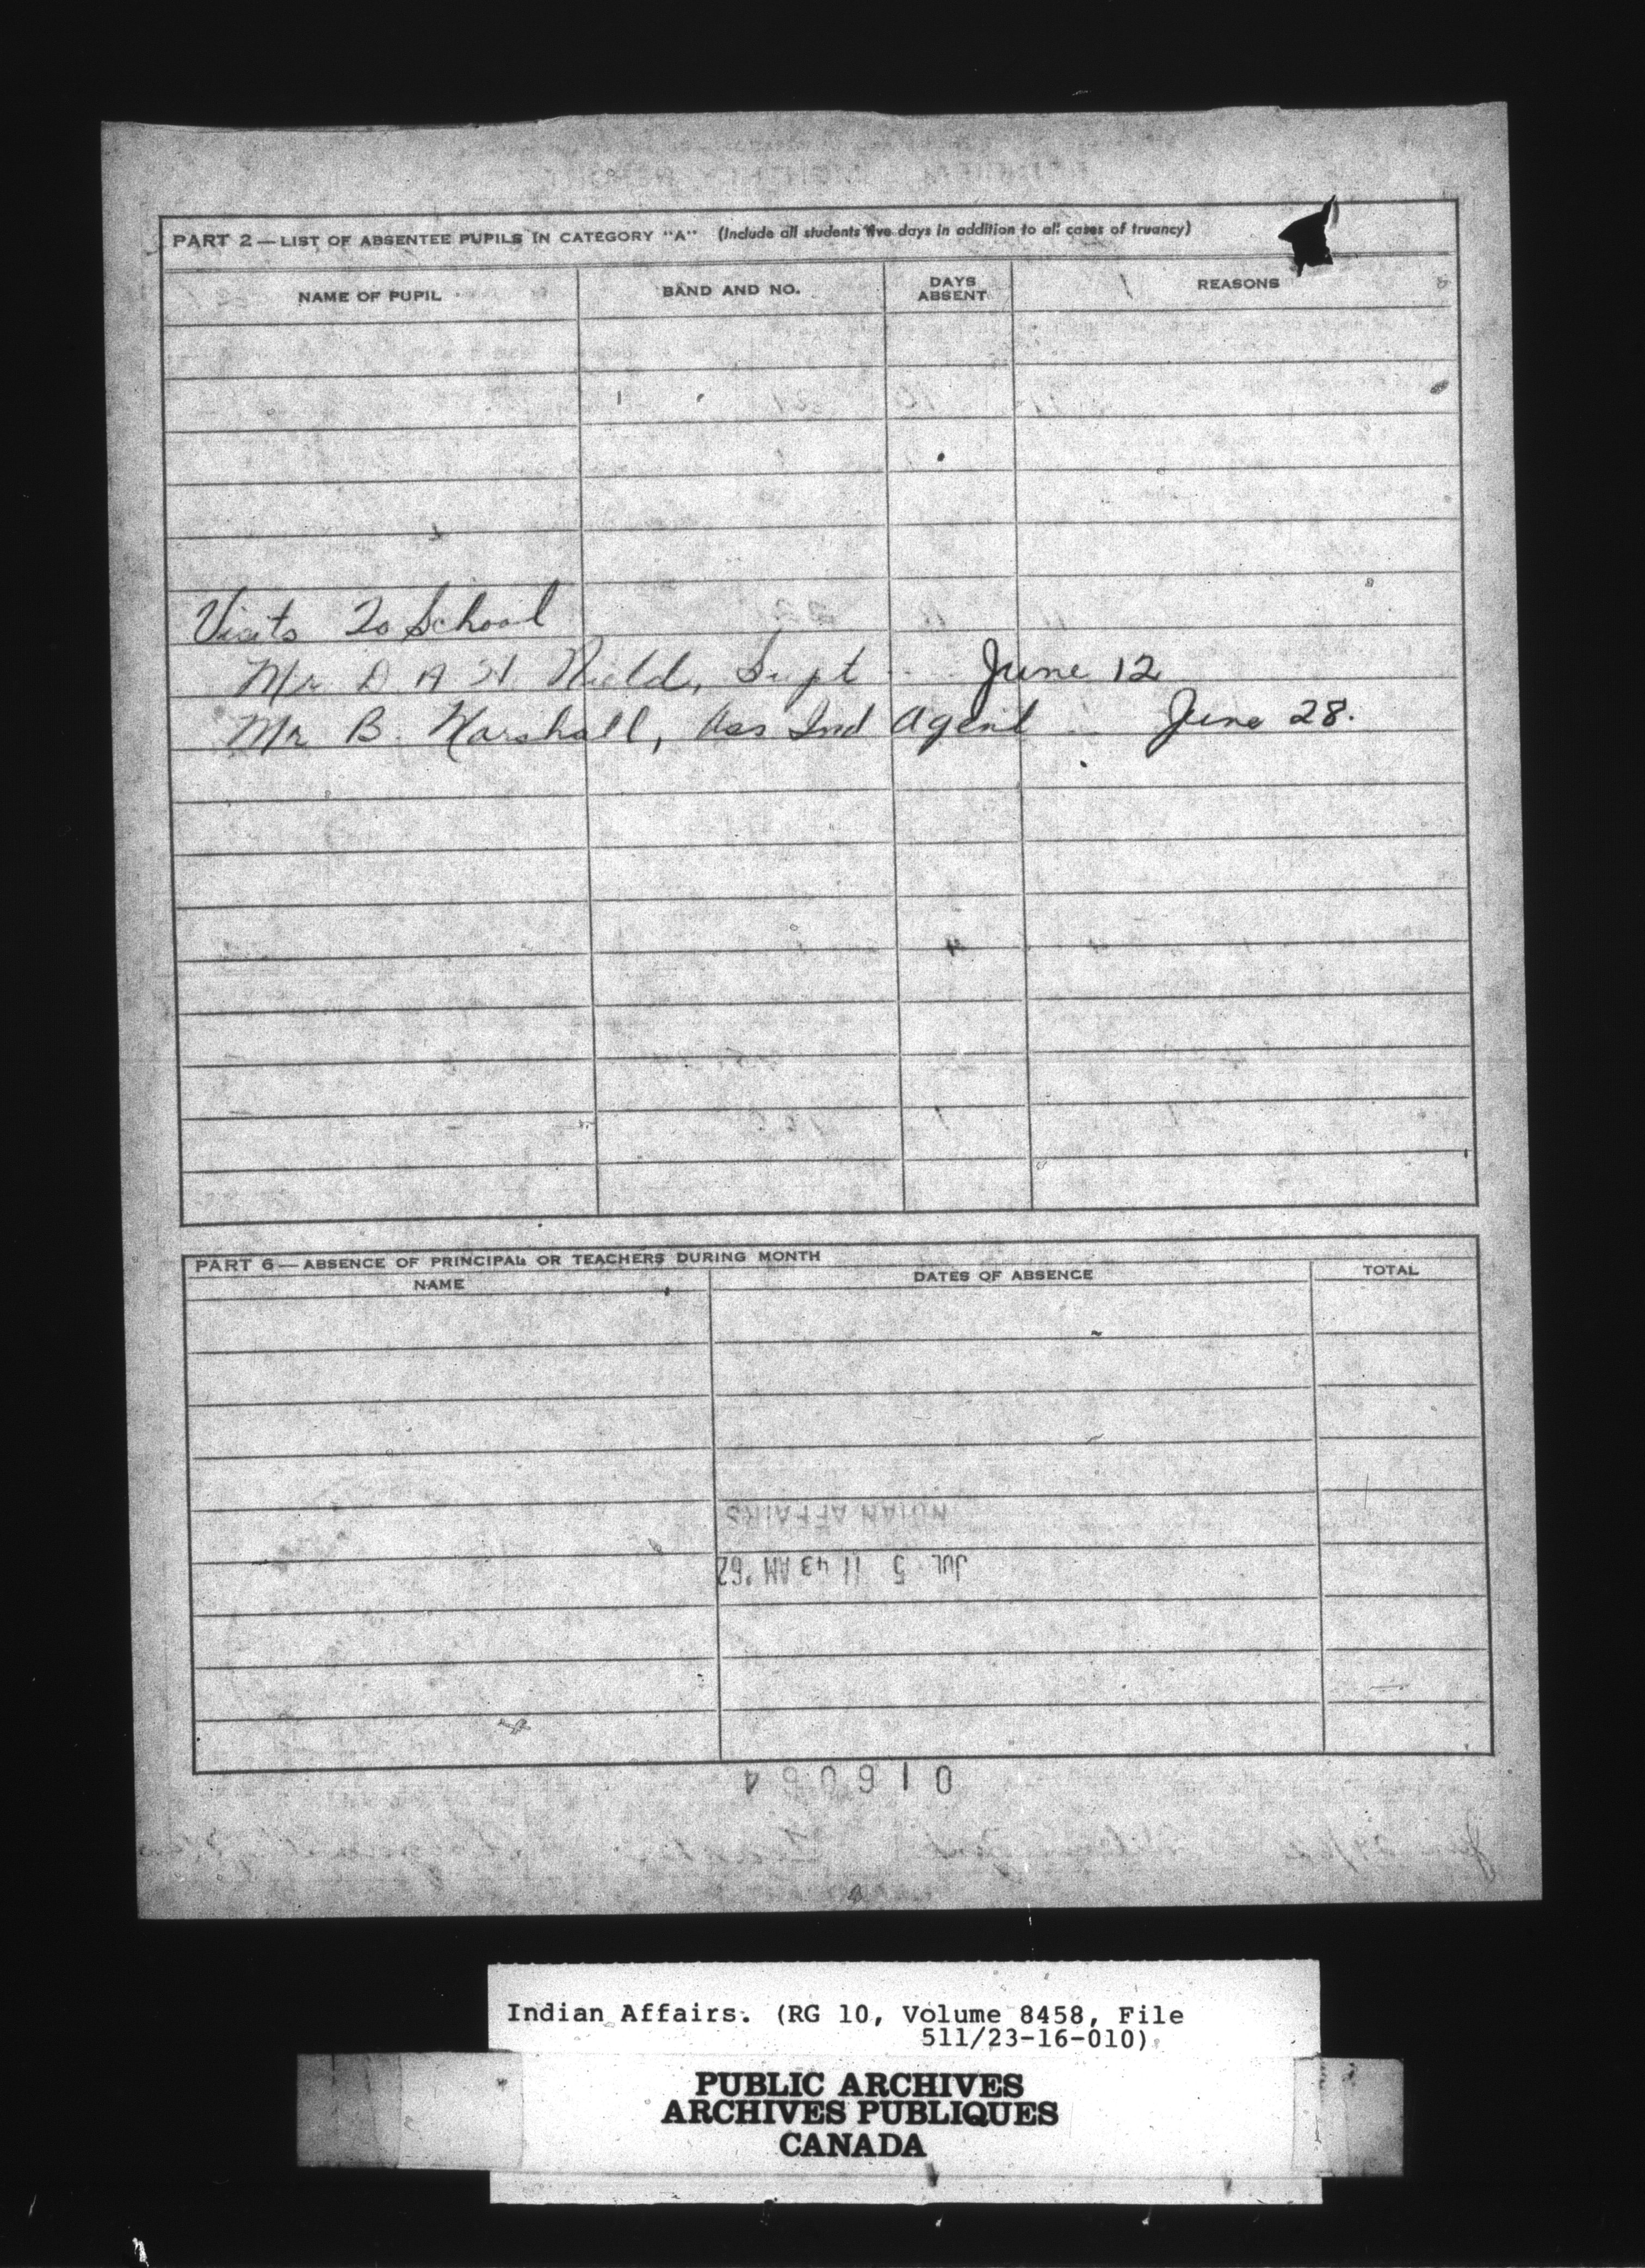 PART 2 — LIST OF ABSENTEE PUPILS IN CATEGORY "A" (Include all students five days in addition to all cases of truancy)
NAME OF PUPIL BAND AND NO. DAYS ABSENT REASONS
Visits To School
Mr D. A. H. Nield, Supt - - June 12
Mr B. Marshall, Ass Ind Agent - June 28.
PART 6 — ABSENCE OF PRINCIPAL OR TEACHERS DURING MONTH
NAME DATES OF ABSENCE TOTAL
INDIAN AFFAIRS
JUL 5 11 43 AM '62
016064
Indian Affairs. (RG 10, Volume 8458, File
511/23-16-010)
PUBLIC ARCHIVES
ARCHIVES PUBLIQUES
CANADA